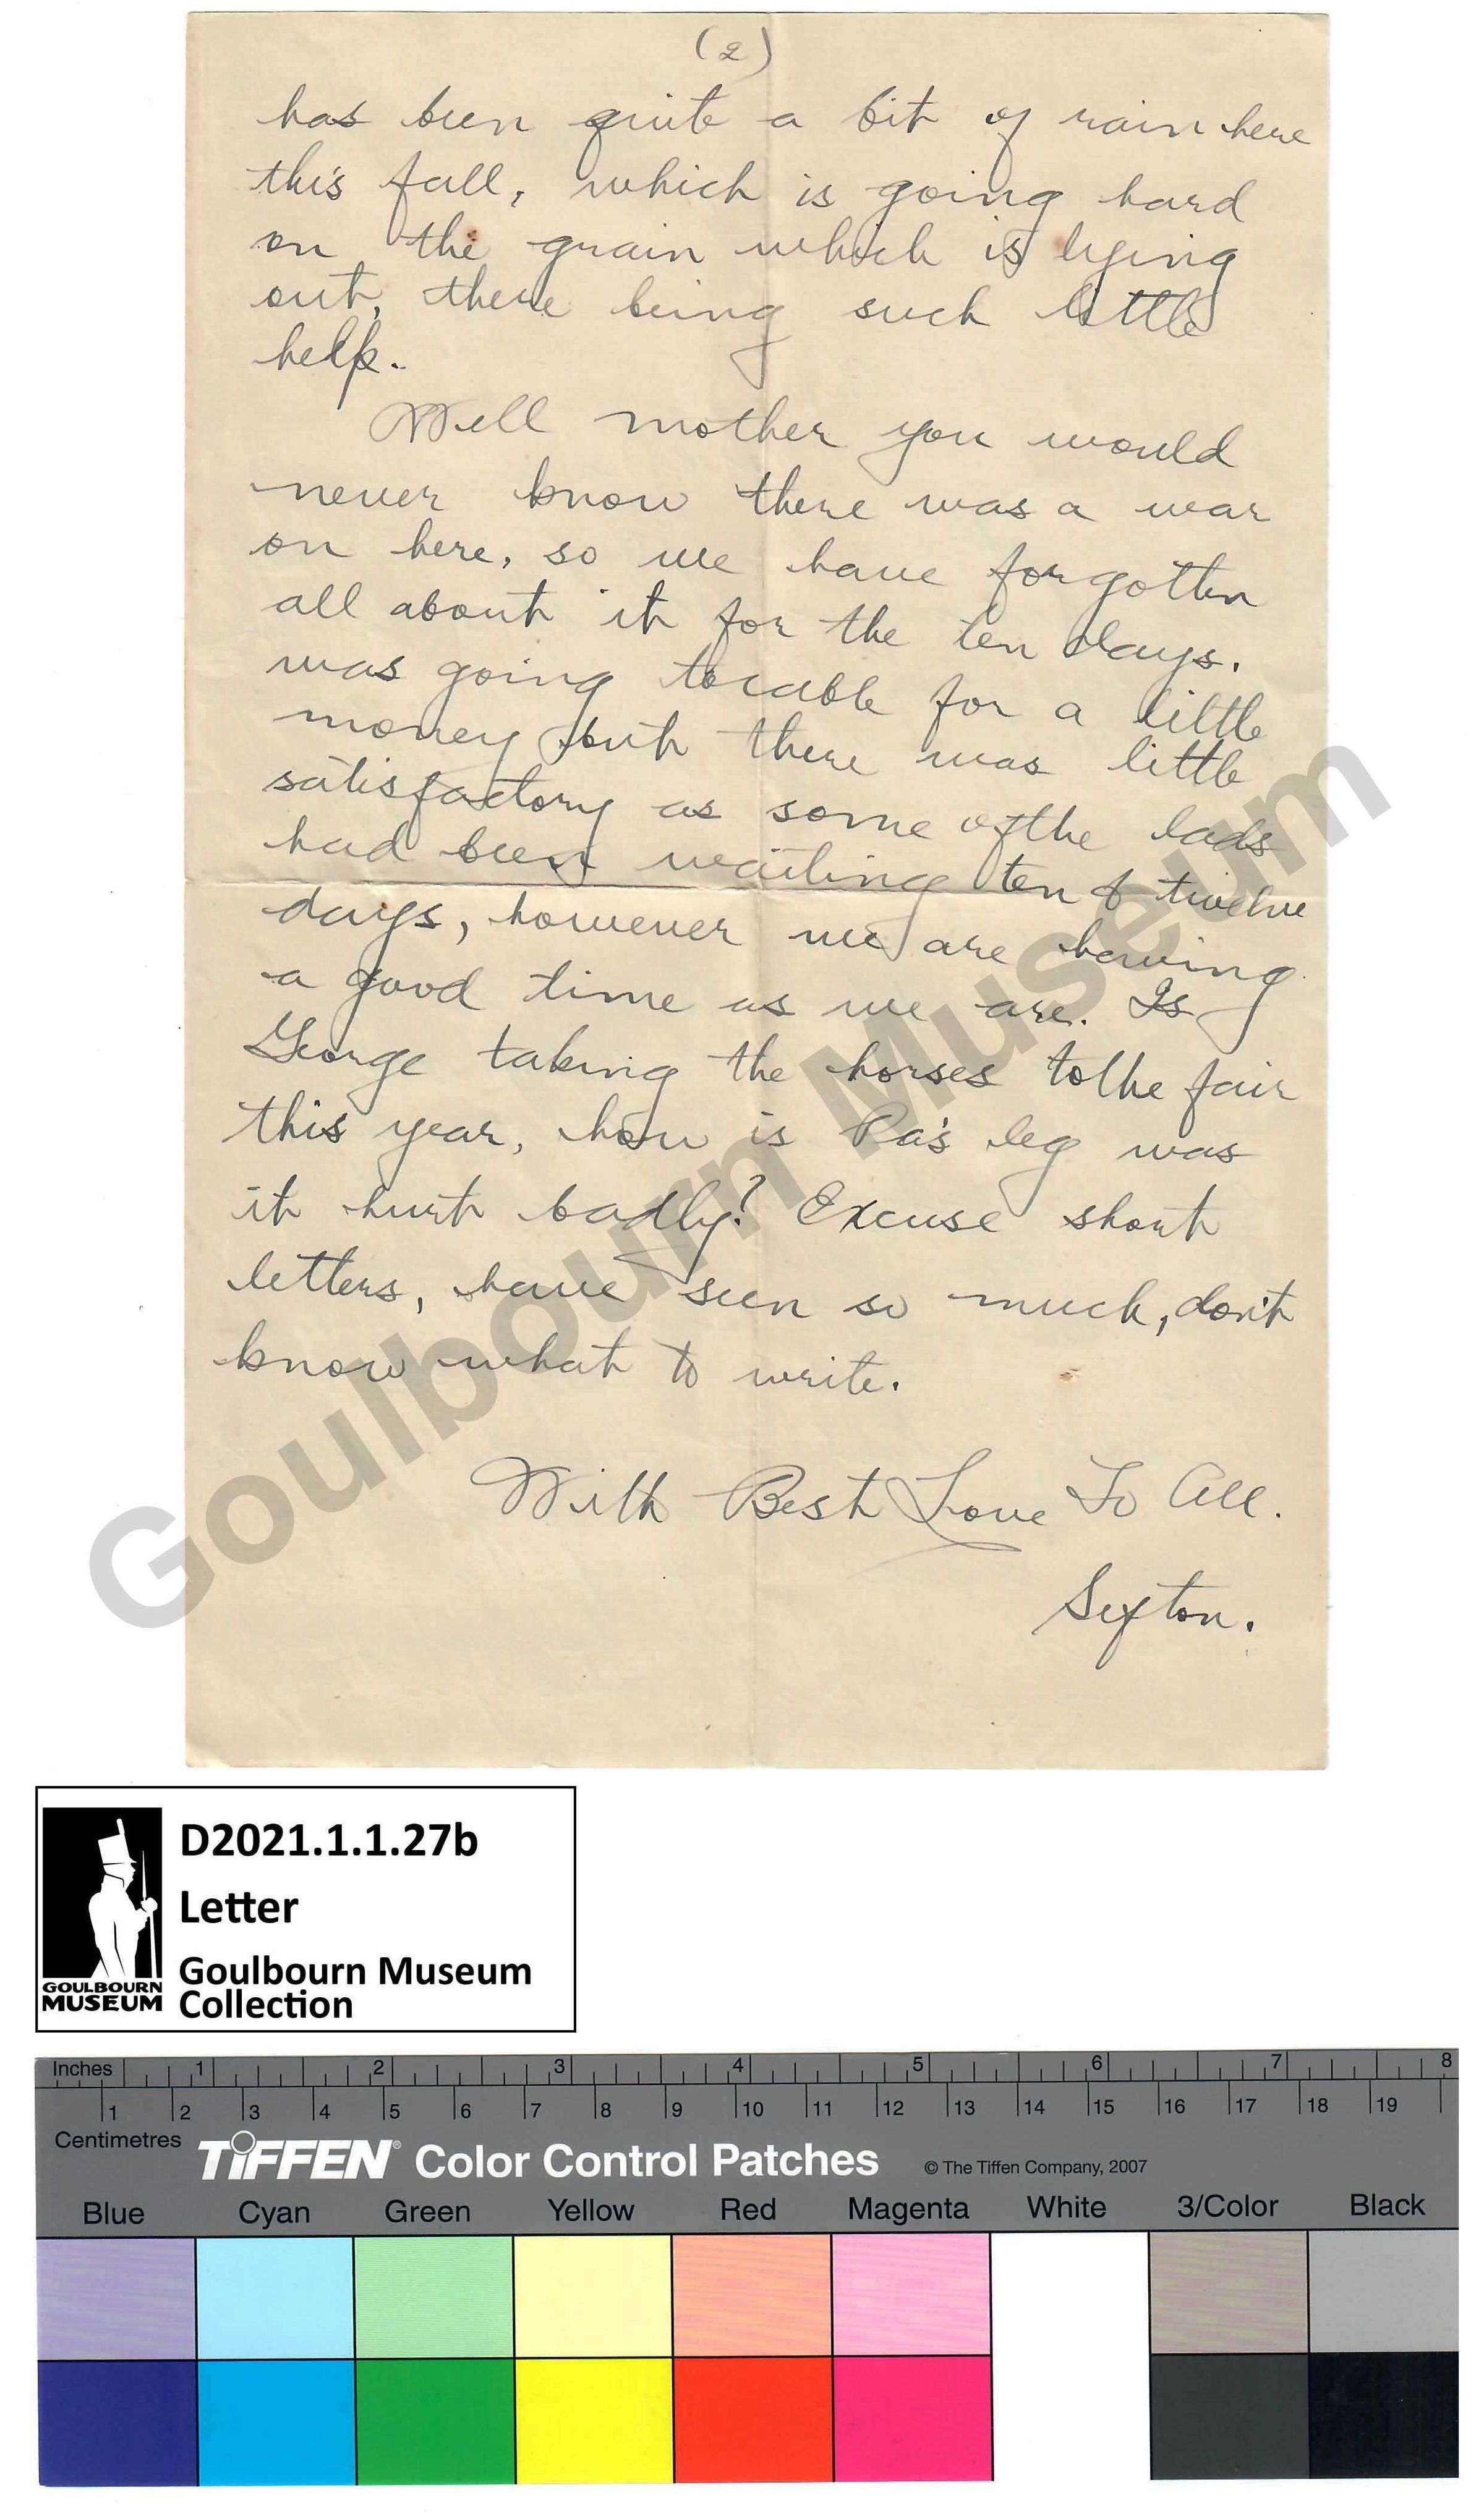 (2)
has been quite a bit of rain here
this fall, which is going hard
on the grain which is lying
out, there being such little
help.
Well mother you would
never know there was a war
on here, so we have forgotten
all about it for the ten days.
was going to cable for a little
money but there was little
satisfactory as some of the lads
had been waiting ten & twelve
days, however we are having
a good time as we are. Is
George taking the horses to the fair
this year, how is Pa's leg was
it hurt badly? Excuse short
letters, have seen so much, don't
know what to write.
With Best Love To All.
Sexton.
Goulbourn Museum
D2021.1.1.27b
Letter
Goulbourn Museum
Collection
GOULBOURN
MUSEUM
Inches 1 2 3 4 5 6 7 8
1 2 3 4 5 6 7 8 9 10 11 12 13 14 15 16 17 18 19
Centimetres
TIFFEN® Color Control Patches © The Tiffen Company, 2007
Blue Cyan Green Yellow Red Magenta White 3/Color Black